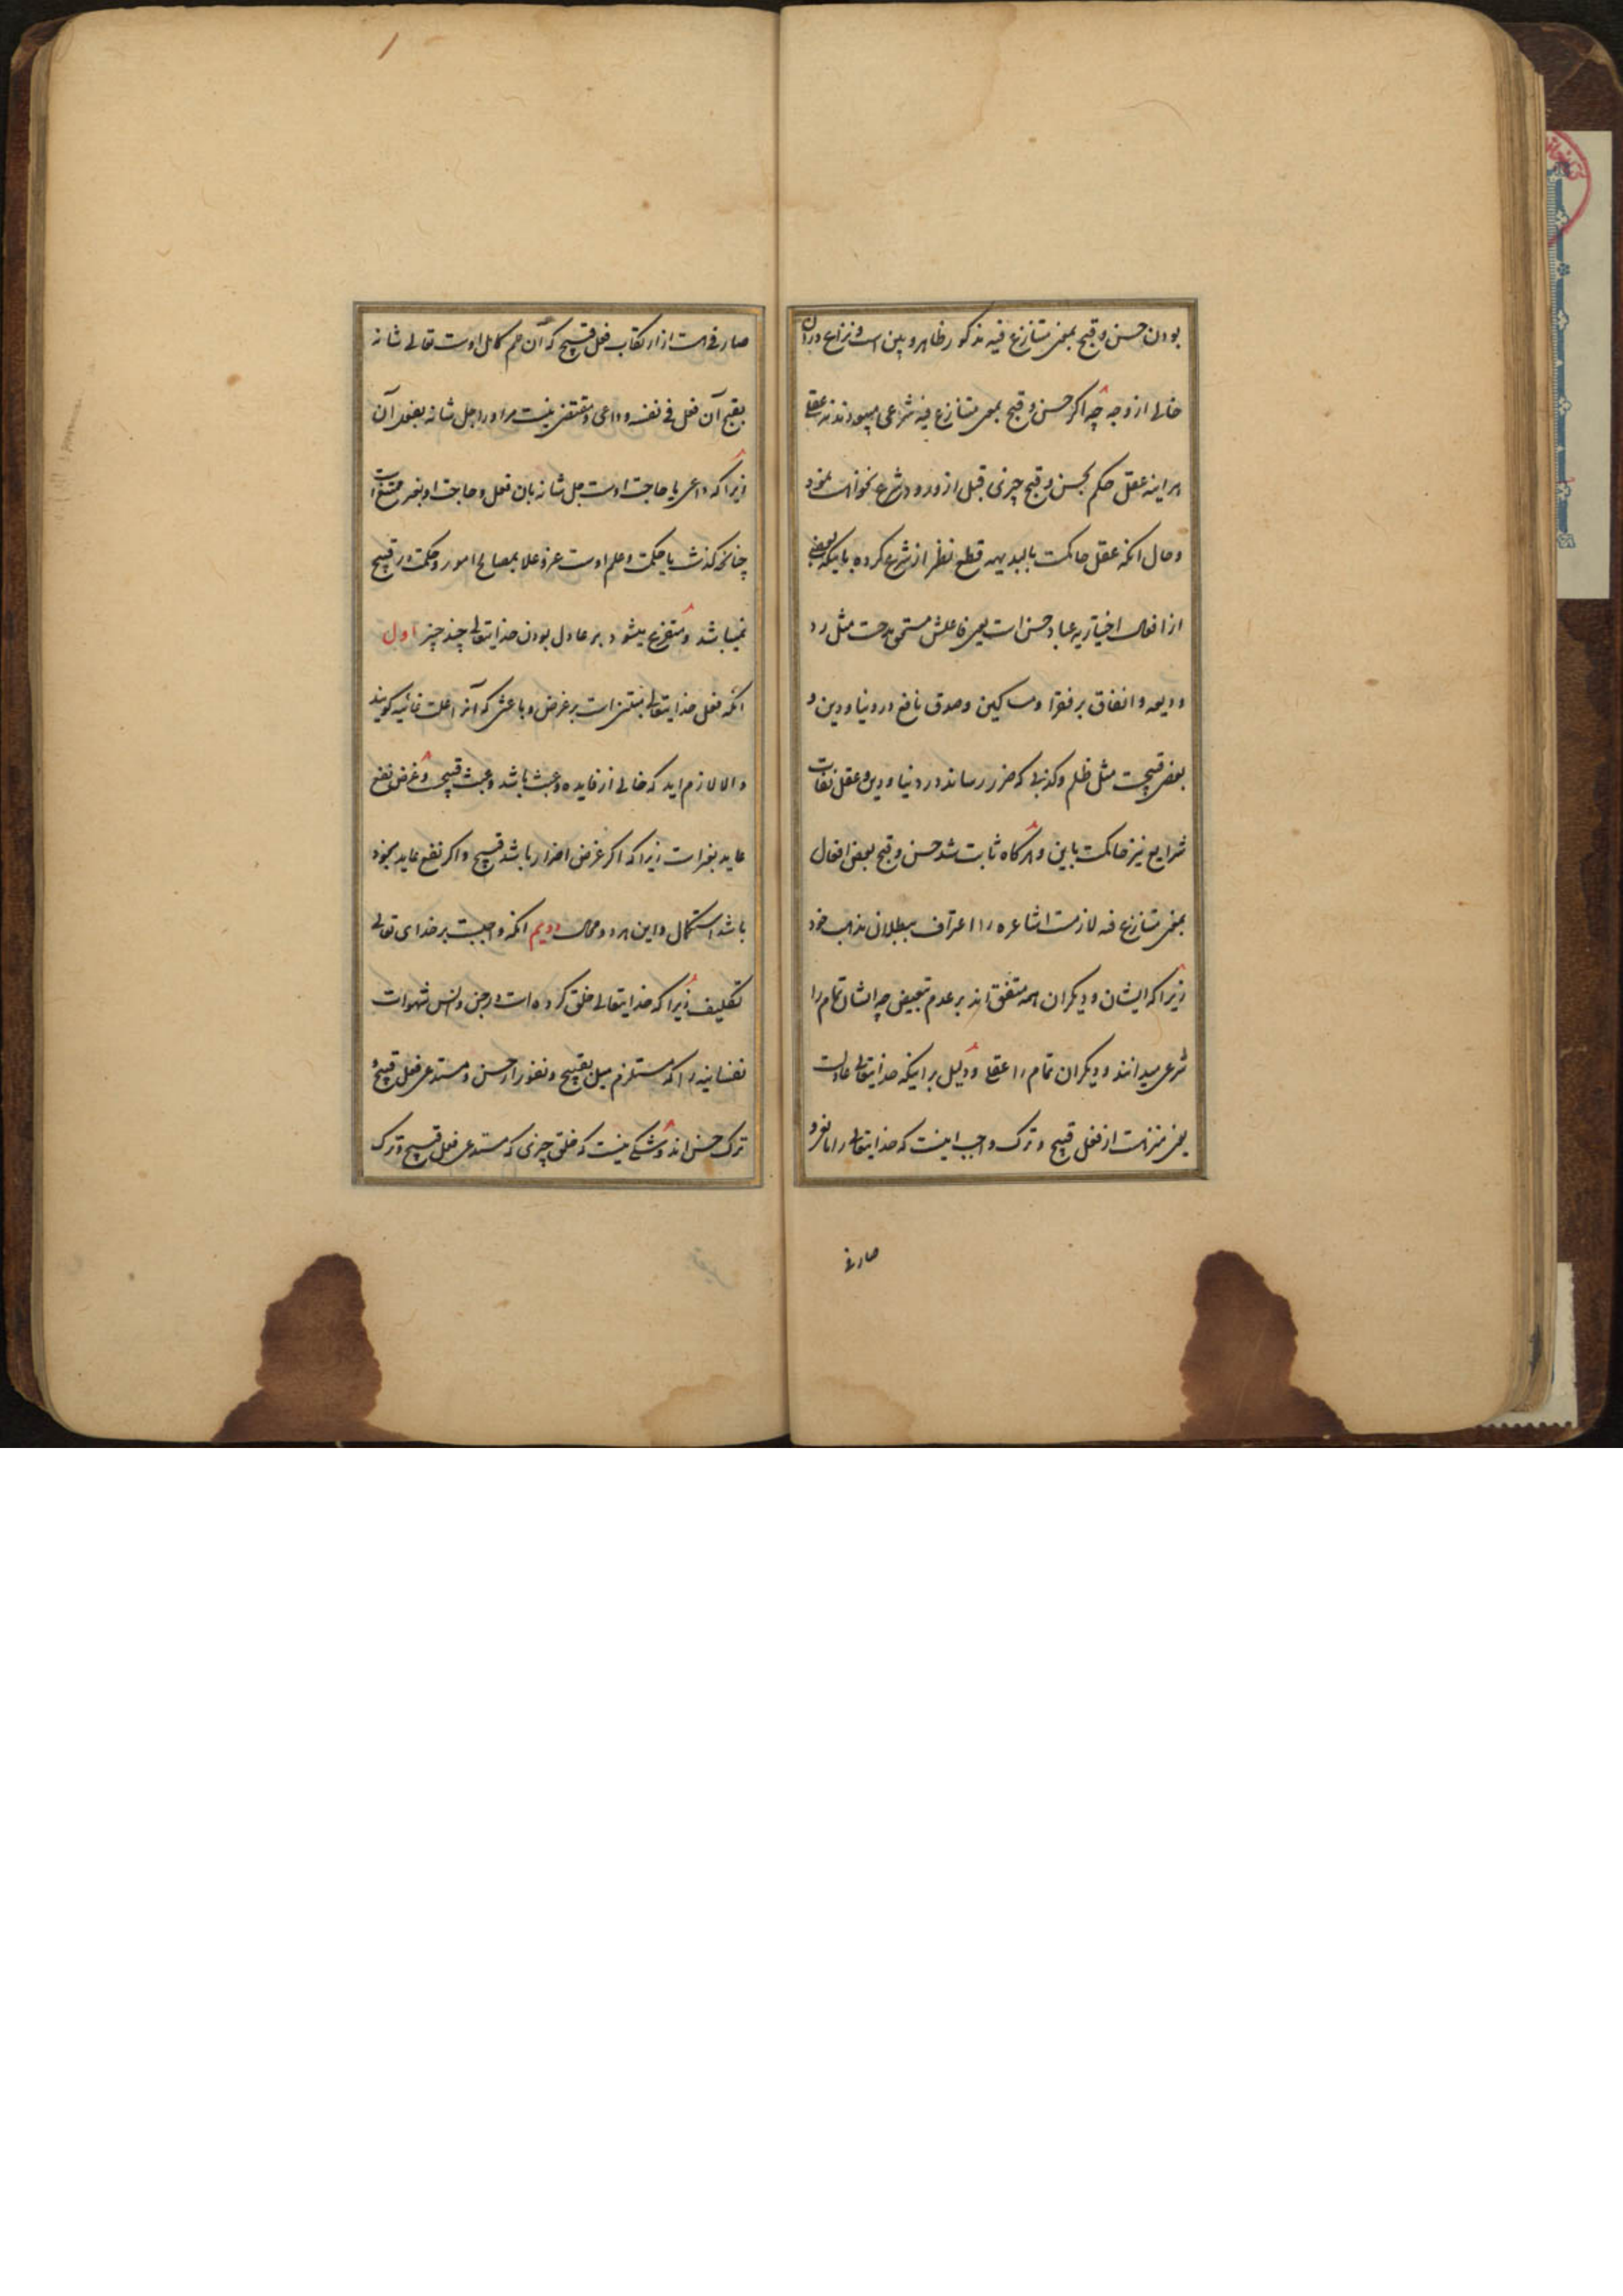 بودن حسن و قبح بمعنی متنازع فیه مذکور ظاهر و بین است و نزاع در ان
خالی از وجه چه اگر حسن و قبح بمعنی متنازع فیه شرعی میبودند نه عقلی
هر اینه عقل حکم بحسن و قبح چیزی قبل از ورود شرع نخواست نمود
و حال انکه عقل حاکمست بالبدیهه قطع نظر از شرع کرده باینکه بعضی
از افعال اختیاریه عباد حسن است یعنی فاعلش مستحق مدحست مثل رد
ودیعه و انفاق بر فقرا و مساکین و صدق نافع در دنیا و دین و
بعضی قبیحست مثل ظلم و کذبی که ضرر رساند در دنیا و دین و عقل نفات
شرایع نیز حاکمست باین و هرگاه ثابت شد حسن و قبح بعضی افعال
بمعنی متنازع فیه لازمست اشاعره را اعتراف ببطلان مذهب خود
زیرا که ایشان و دیگران همه متفق اند بر عدم تبعیض چه ایشان تمام را
شرعی میدانند و دیگران تمام را عقلی و دلیل بر اینکه خدایتعالی عادلست
یعنی منزهست از فعل قبیح و ترک واجب اینست که خدایتعالی را مانع و
صارفی
صارفی هست از ارتکاب فعل قبیح که آن علم کامل اوست تعالی شانه
بقبح آن فعل فی نفسه و داعی و مقتضی نیست مر او را جل شانه بفعل آن
زیرا که داعی یا حاجت اوست جل شانه بان فعل و حاجت او بغیر ممتنع است
چنانکه گذشت یا حکمت و علم اوست عز و علا بمصالح امور و حکمت در قبیح
نمیباشد و متفرع میشود بر عادل بودن خدایتعالی چند چیز اول
انکه فعل خدایتعالی مبتنی است بر غرض و باعثی که آنرا علت غائیه گویند
و الا لازم اید که خالی از فایده و عبث باشد و عبث قبیح و غرض نفع
عاید بغیر است زیرا که اگر غرض اضرار باشد قبیح و اگر نفع عاید بخود
باشد استکمال و این هر دو محال دویم انکه واجبست بر خدای تعالی
تکلیف زیرا که خدایتعالی خلق کرده است در جن و انس شهوات
نفسانیه را که مستلزم میل بقبیح و نفور از حسن و مستدعی فعل قبیح و
ترک حسن اند و شکی نیست که خلق چیزی که مستدعی فعل قبیح و ترک